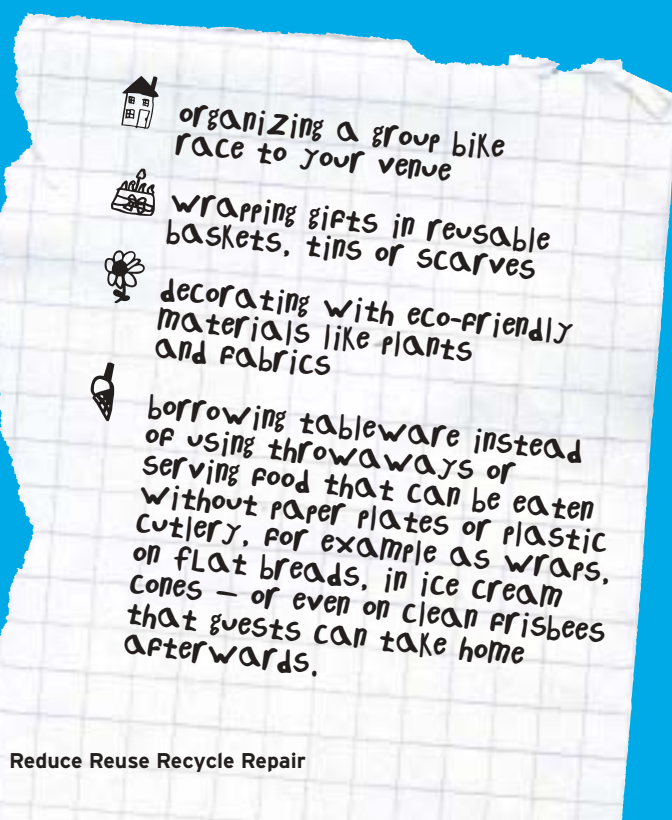 organizing a group bike
race to your venue
wrapping gifts in reusable
baskets, tins or scarves
decorating with eco-friendly
materials like plants
and fabrics
borrowing tableware instead
of using throwaways or
serving food that can be eaten
without paper plates or plastic
cutlery, for example as wraps,
on flat breads, in ice cream
cones – or even on clean frisbees
that guests can take home
afterwards.
Reduce Reuse Recycle Repair